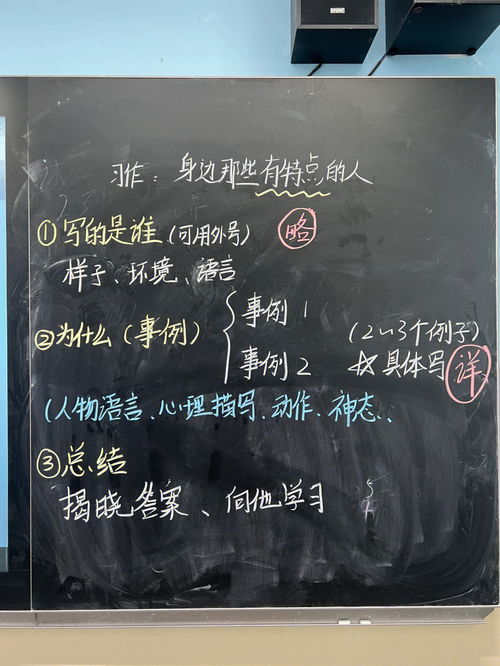 习作：身边那些有特点的人
①写的是谁（可用外号） 略
样子、环境、语言
②为什么（事例） 事例1 （2~3个例子）
事例2 ☆具体写 详
（人物语言、心理描写、动作、神态、
③总结
揭晓答案、向他学习